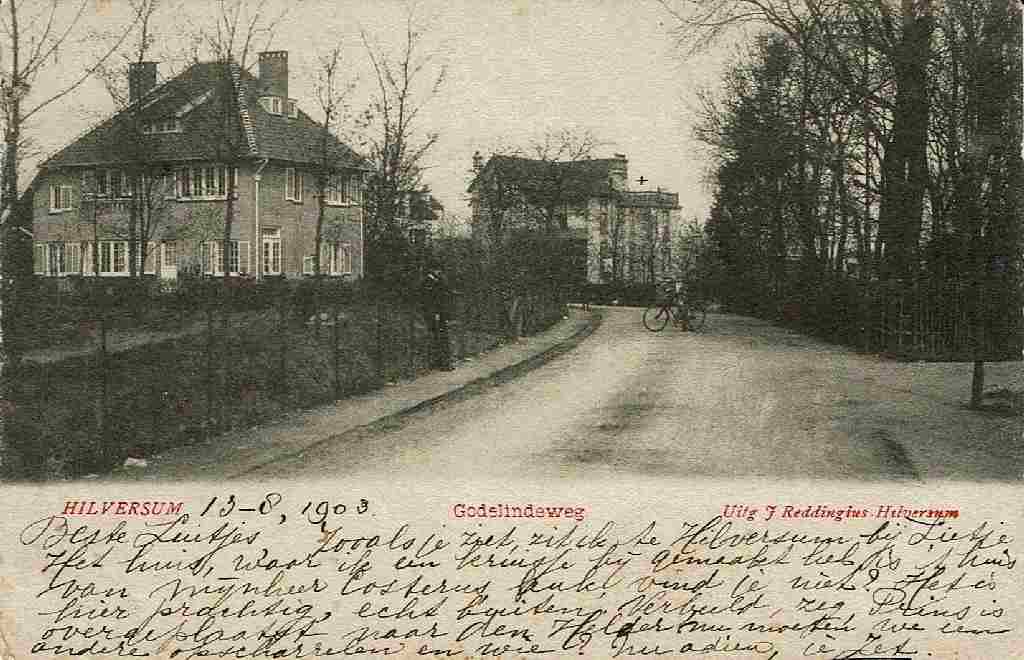 HILVERSUM 13-8, 1903 Godelindeweg Uitg J Reddingius Hilversum
Beste Luitjes Zooals je ziet, zit ik te Hilversum bij Lietje
Het huis, waar ik een kringje bij gemaakt heb is 't huis
van Mijnheer Costerus. Leuk vind je niet? Het is
hier prachtig, echt buiten. Verbeeld, zeg, Prins is
overgeplaatst naar den Helder nu moeten we een
andere opscharrelen en wie? Nu adieu, je Jet.